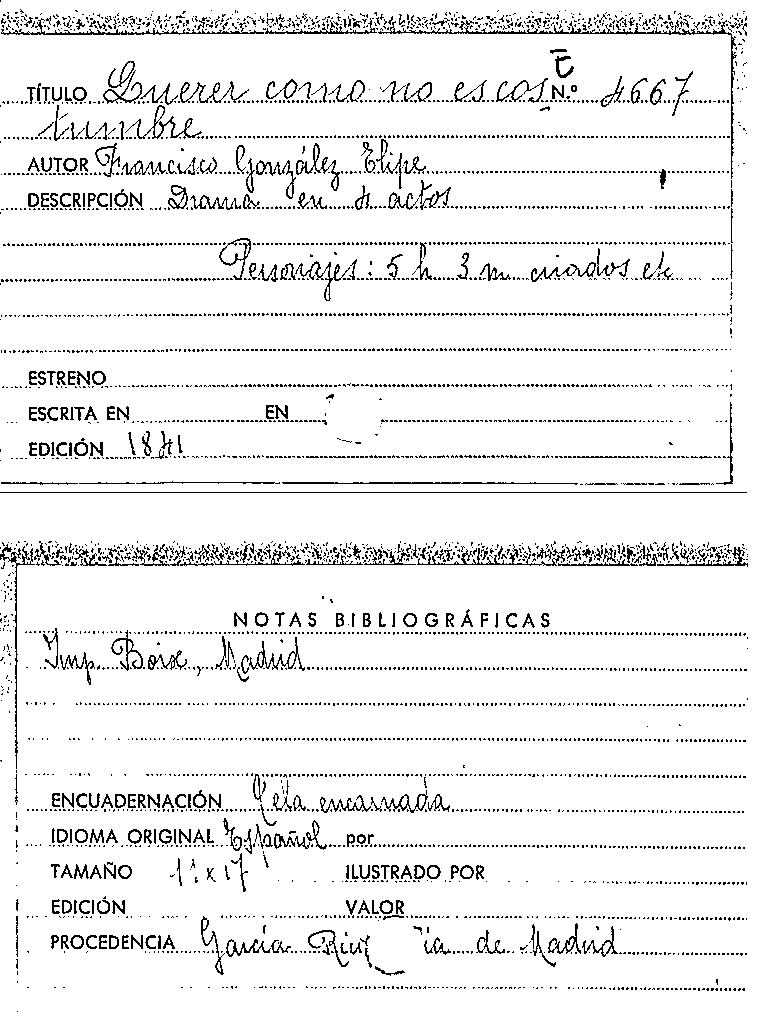 E
TÍTULO Querer como no es cos N.º 4667
tumbre
AUTOR Francisco González Elipe
DESCRIPCIÓN Drama en 4 actos
Personajes: 5 h 3 m criados etc
ESTRENO
ESCRITA EN EN
EDICIÓN 1841
NOTAS BIBLIOGRÁFICAS
Imp. Boix, Madrid
ENCUADERNACIÓN Tela encarnada
IDIOMA ORIGINAL Español por
TAMAÑO x 17 ILUSTRADO POR
EDICIÓN VALOR
PROCEDENCIA García Rico de Madrid